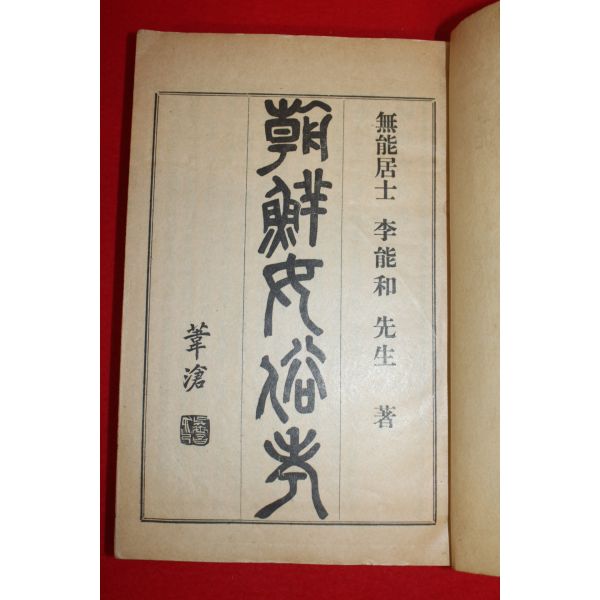 無能居士 李能和 先生 著
朝鮮女俗考
葦滄